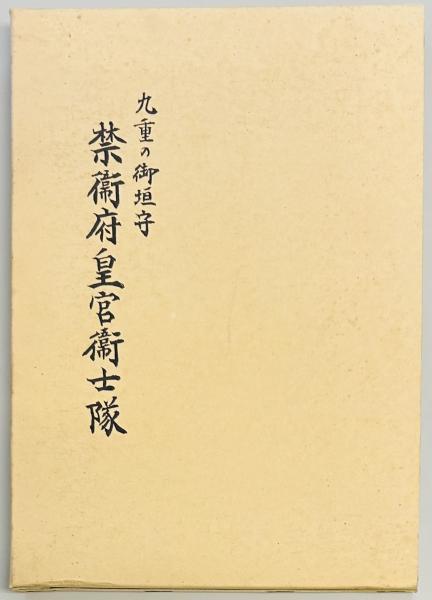 九重の御垣守
禁衞府皇宮衞士隊